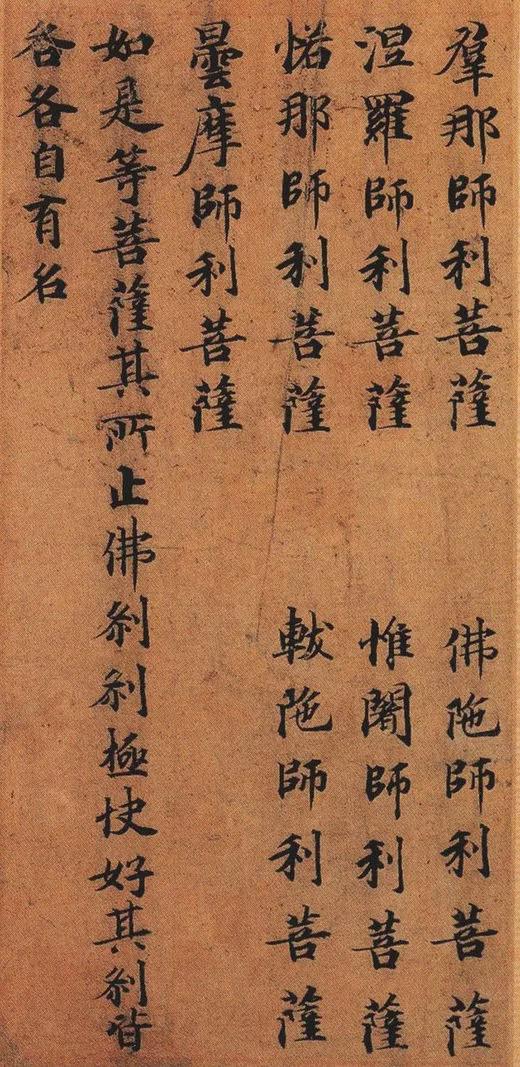 羣那師利菩薩　佛陁師利菩薩
涅羅師利菩薩　惟闍師利菩薩
那師利菩薩　軷陁師利菩薩
曇摩師利菩薩
如是等菩薩其所止佛刹刹極快好其刹皆
各各自有名